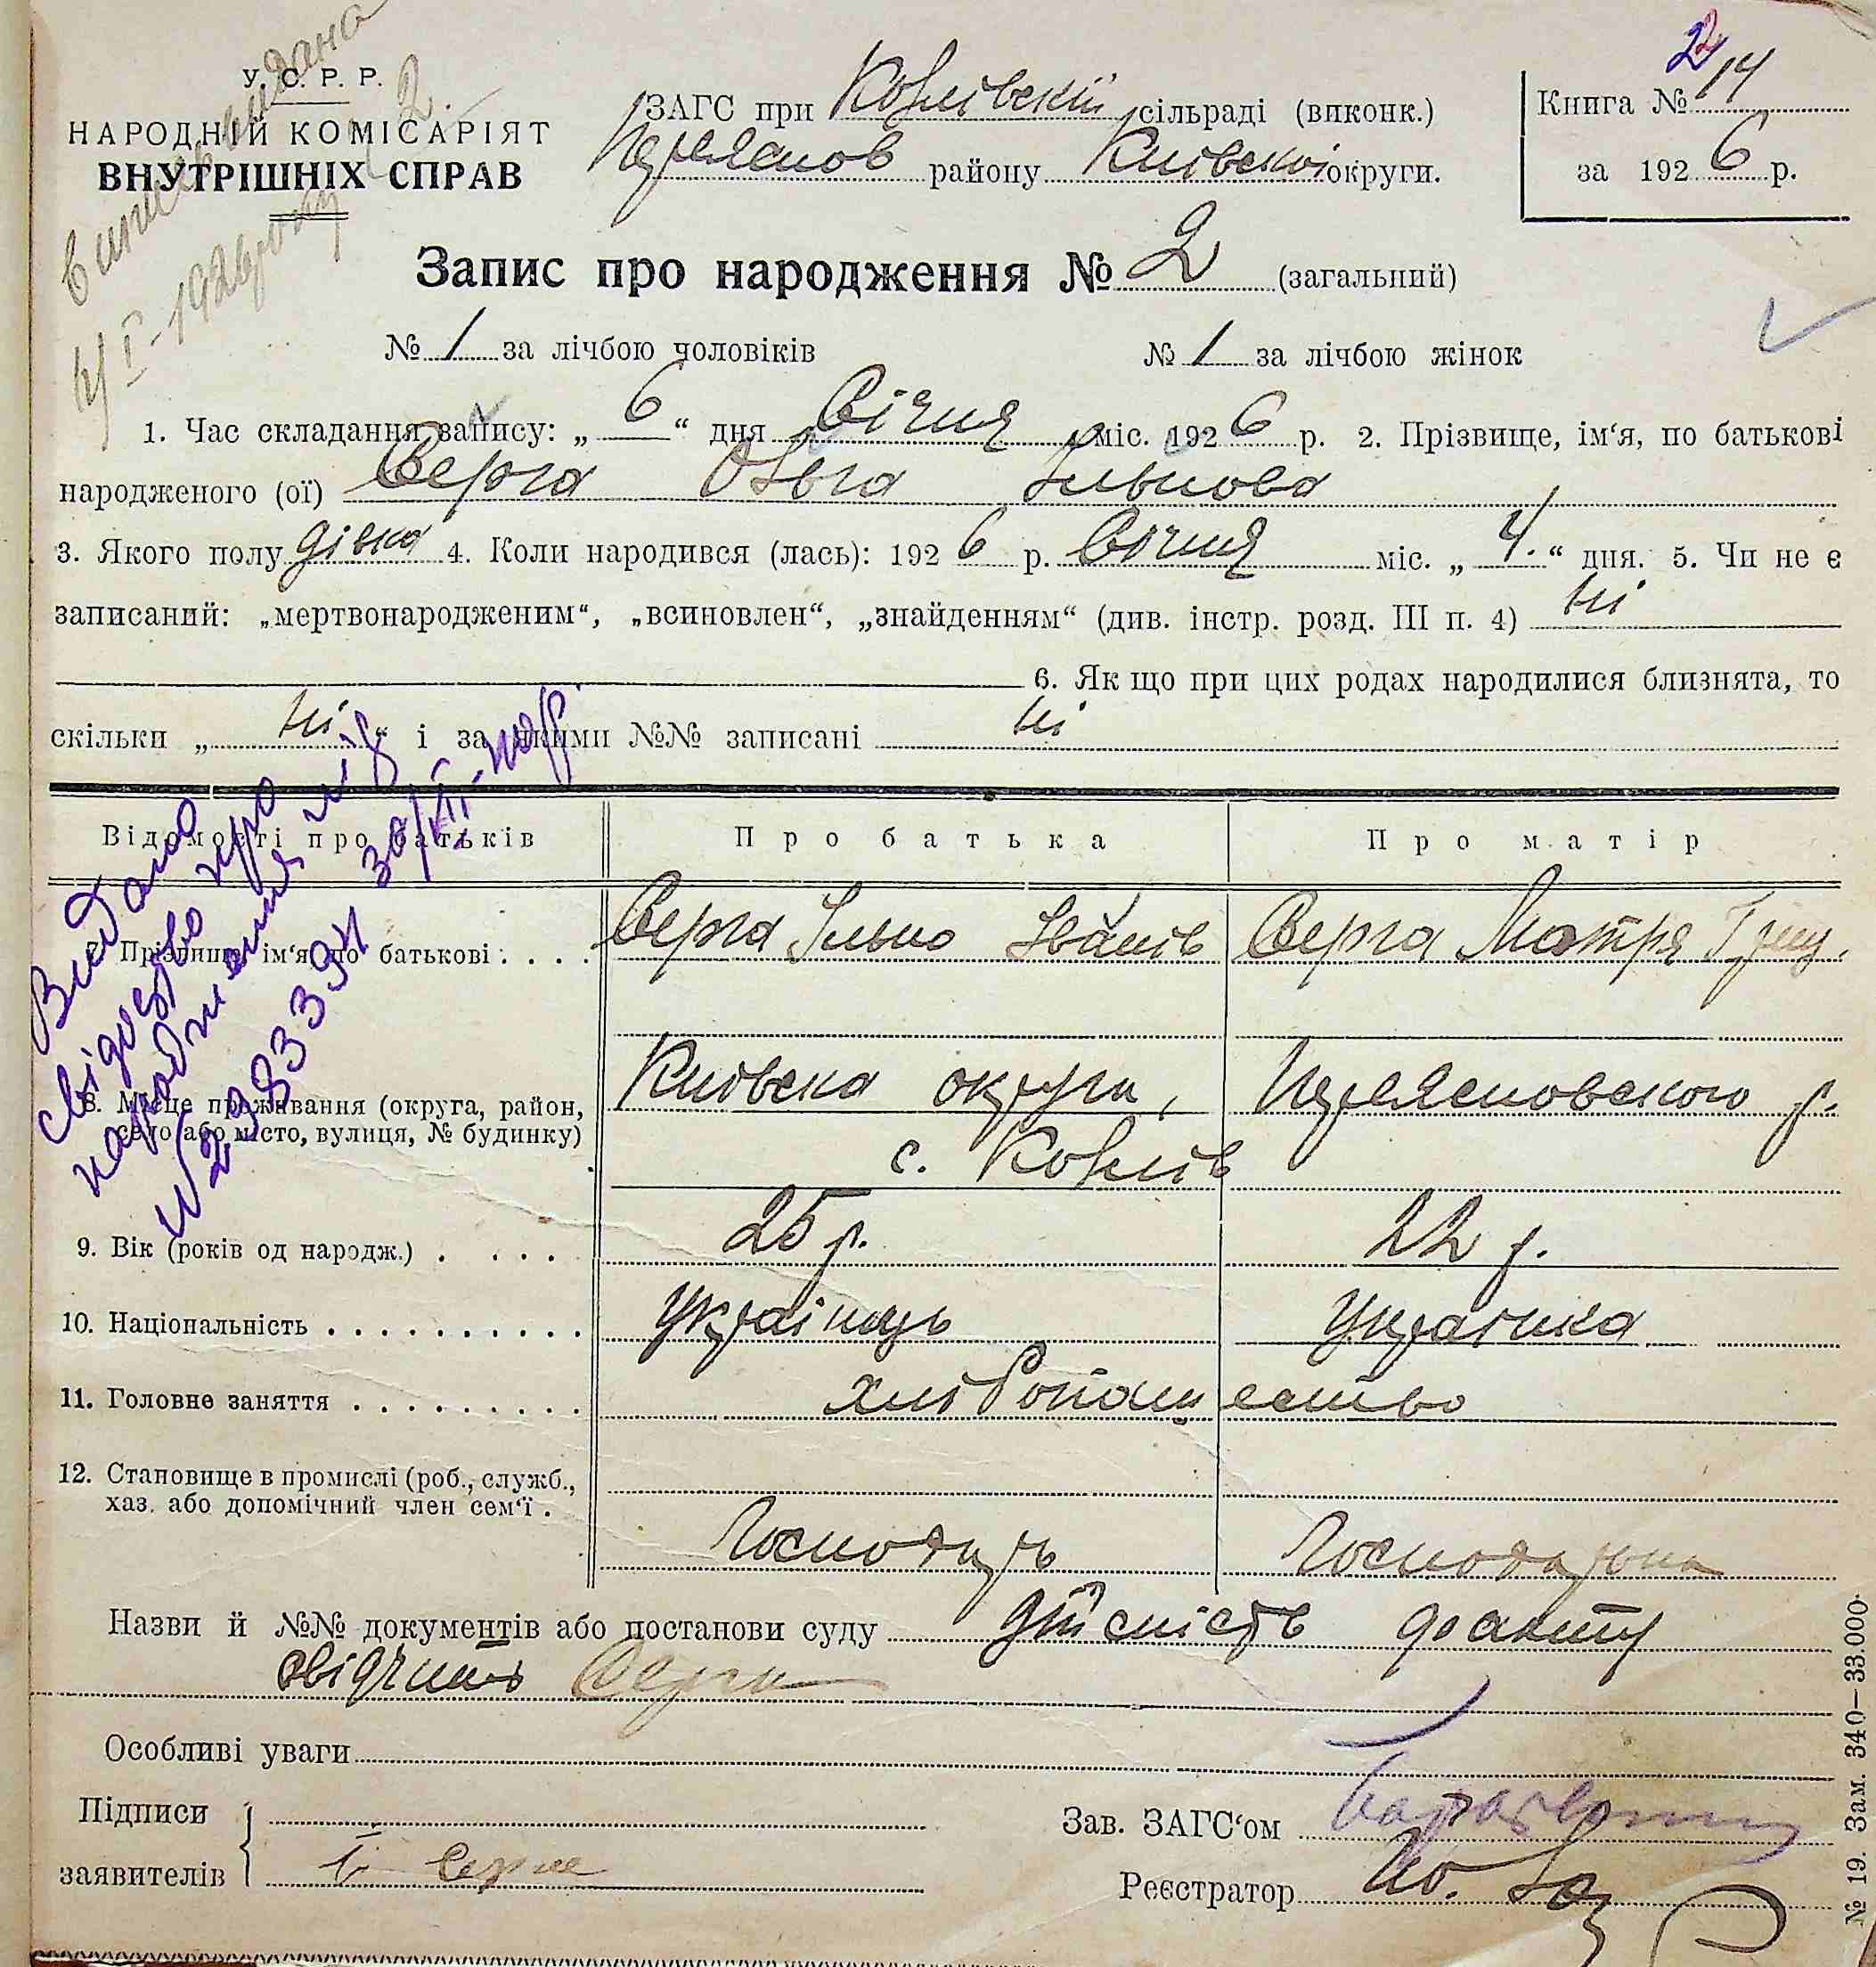 У. С. Р. Р.
НАРОДНІЙ КОМІСАРІЯТ
ВНУТРІШНІХ СПРАВ
ЗАГС при Ковшівскій сільраді (виконк.)
району Київскої округи.
Книга № 14
за 1926 р.
Запис про народження № 2 (загальний)
№ 1 за лічбою чоловіків № 1 за лічбою жінок
1. Час складання запису: „ 6 “ дня Січня міс. 1926 р. 2. Прізвище, ім‘я, по батькові
народженого (ої) Серга Ольга Ільінова
3. Якого полу дівка 4. Коли народився (лась): 1926 р. Січня міс. „ 4. “ дня. 5. Чи не є
записаний: „мертвонародженим“, „всиновлен“, „знайденням“ (див. інстр. розд. III п. 4) ні
6. Як що при цих родах народилися близнята, то
скільки „ ні “ і за якими №№ записані ні
Відомості про батьків Про батька Про матір
7. Прізвище, ім‘я, по батькові : . . . . Серга Ілько Іванів Серга Мотря Гриц.
8. Місце проживання (округа, район,
село або місто, вулиця, № будинку)
Київска округи, р.
с.
9. Вік (років од народж.) . . . . . 25 р. 22 р.
10. Національність . . . . . . . . . . Українець Українка
11. Головне заняття . . . . . . . . . хлібопашество
12. Становище в промислі (роб., служб.,
хаз. або допомічний член сем‘ї .
Господарь Господарка
Назви й №№ документів або постанови суду дійсність факту
свідчить Серга
Особливі уваги
Підписи
заявителів
І. Серга
Зав. ЗАГС‘ом
Реєстратор
Виписъ видана
4/I-1926 року
Видано
свідоцтво про
народження
№ 19. Зам. 340—33.000.